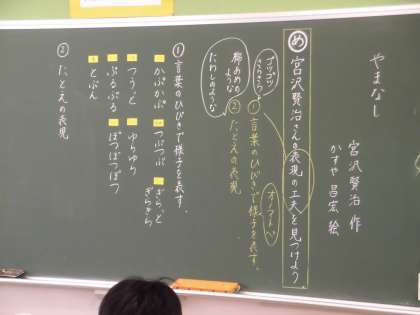 やまなし
宮沢賢治 作
かすや昌宏 絵
め 宮沢賢治さんの表現の工夫を見つけよう。
オノマトペ
① 言葉のひびきで様子を表す。
② たとえの表現
ような
たわしのような
① 言葉のひびきで様子を表す。
かぷかぷ
つぶつぶ
つうっと
ゆらゆり
ぶるぶる
ぽつぽつぽつ
とぶん
② たとえの表現